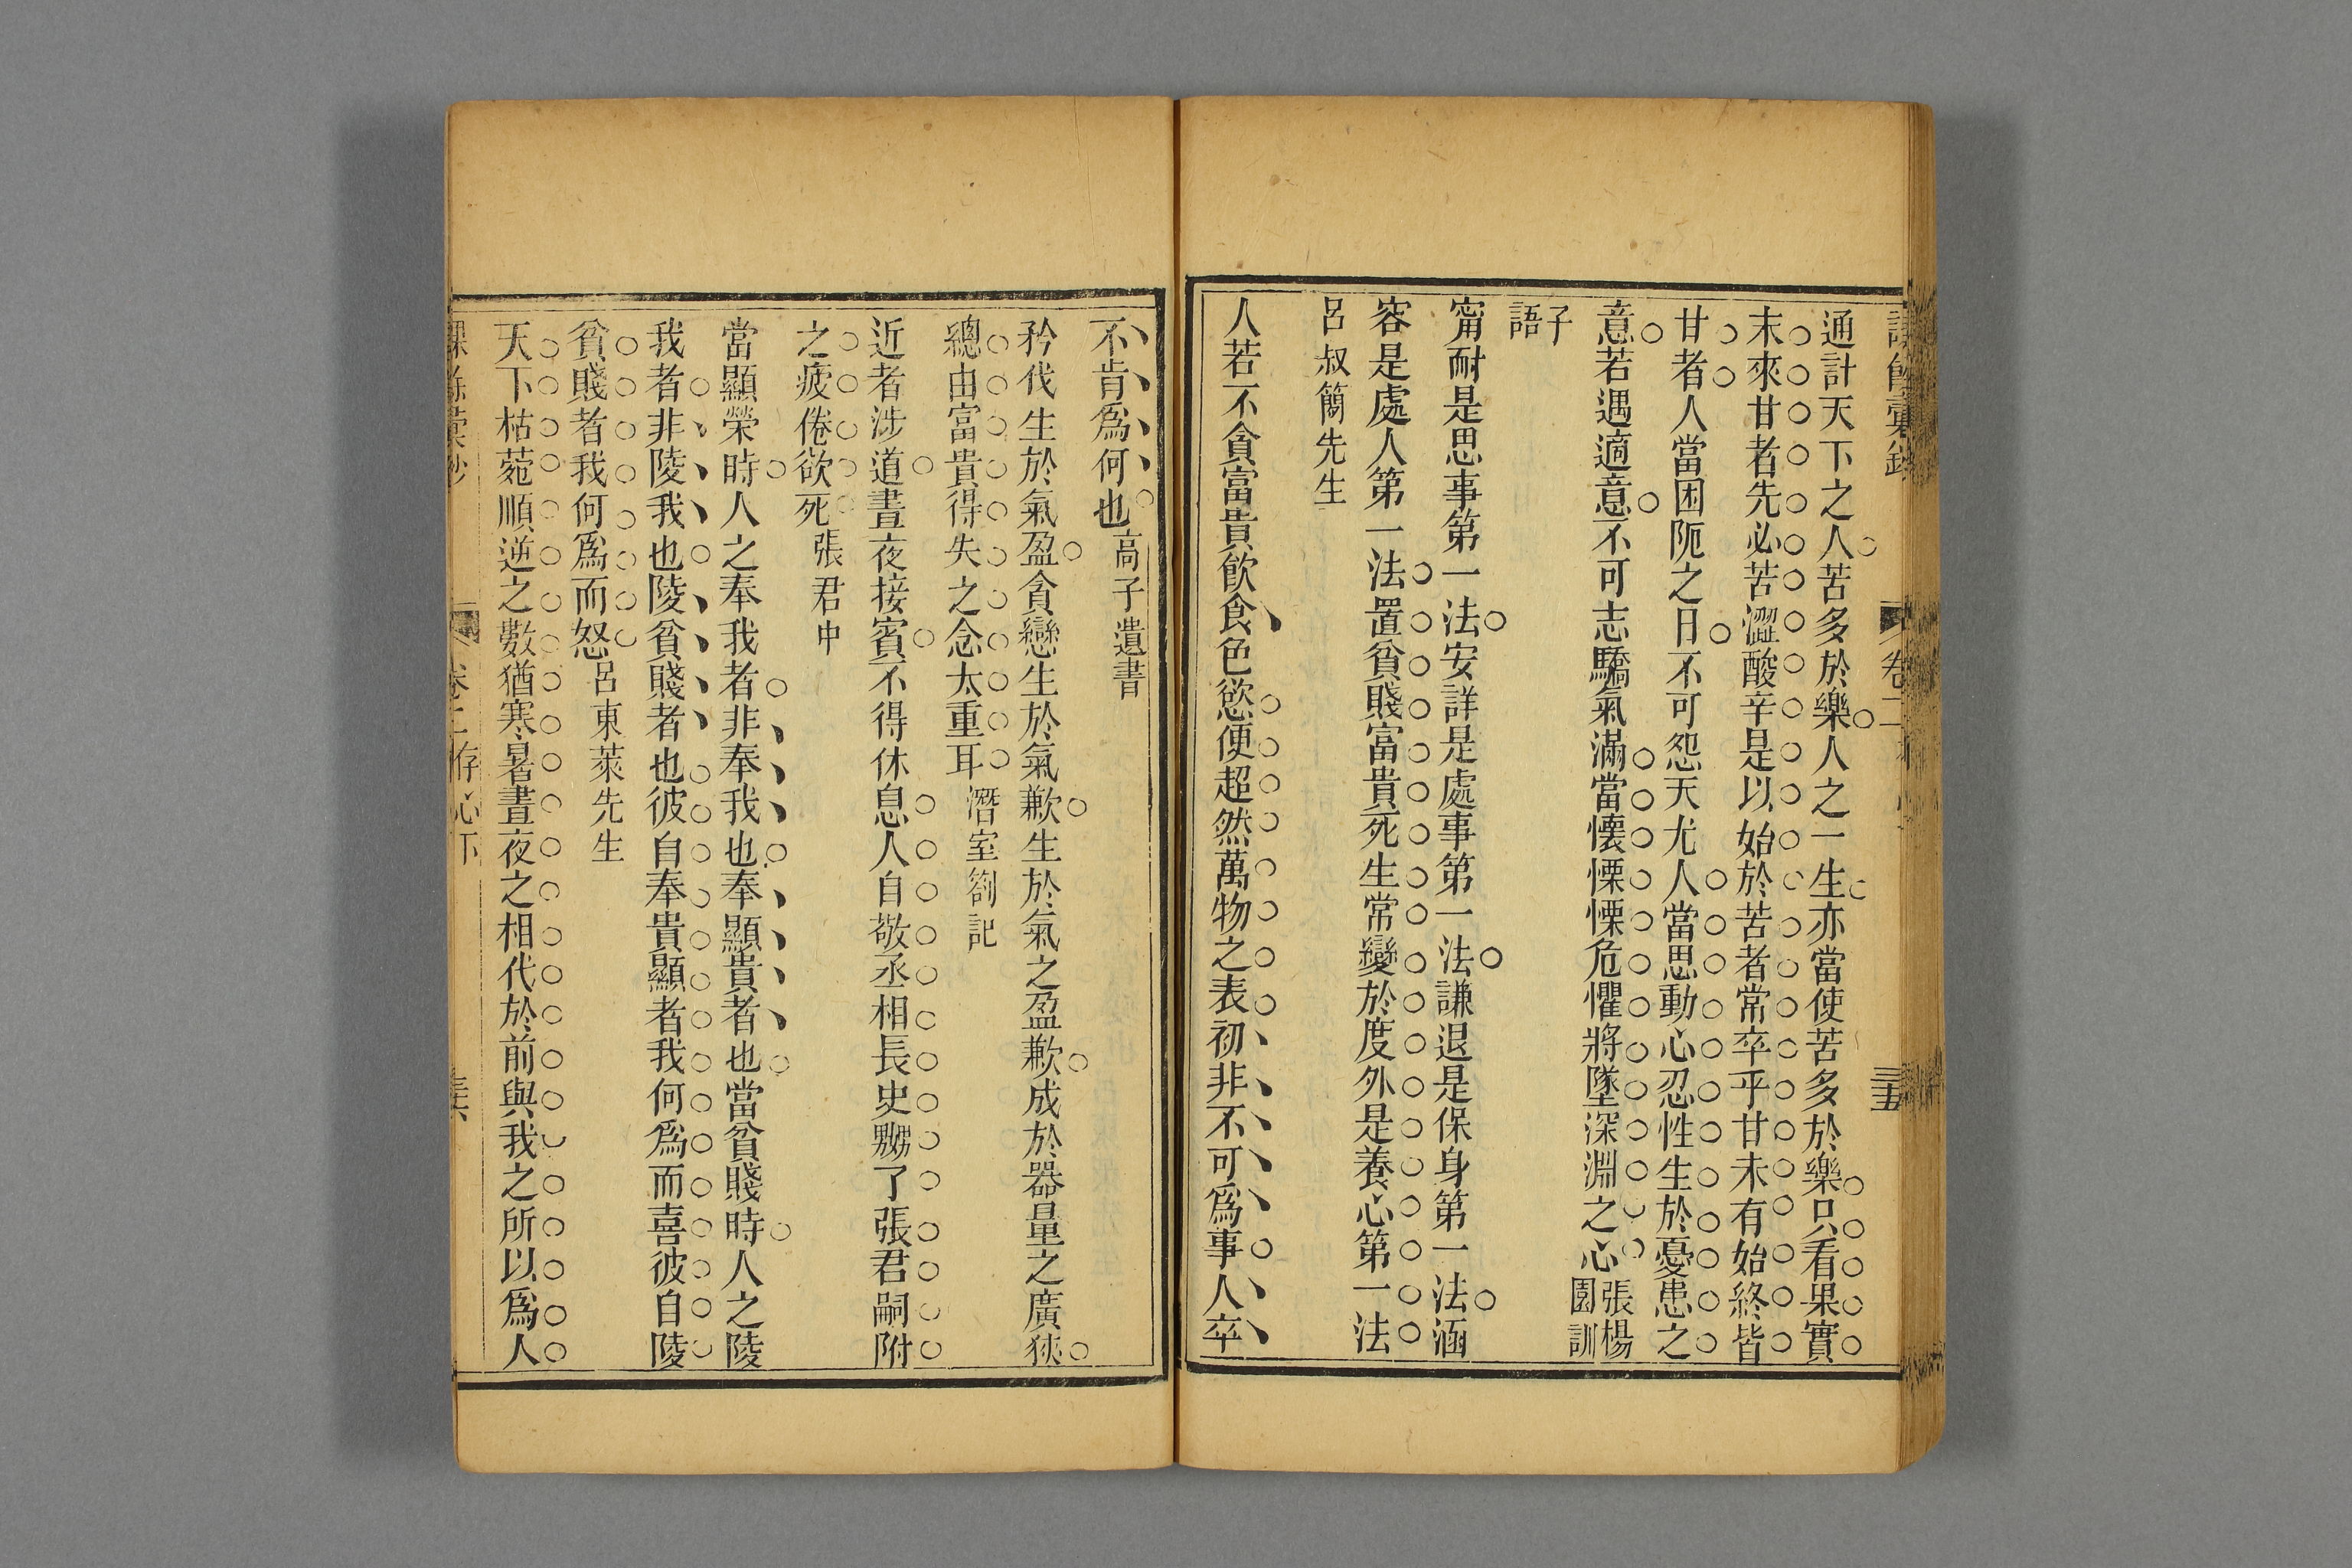 卷二
三五
通計天下之人苦多於樂人之一生亦當使苦多於樂只看果實
末來甘者先必苦澀酸辛是以始於苦者常卒乎甘未有始終皆
甘者人當困阨之日不可怨天尤人當思動心忍性生於憂患之
意若遇適意不可志驕氣滿當懷慄慄危懼將墜深淵之心張楊園訓
子語
甯耐是思事第一法安詳是處事第一法謙退是保身第一法涵
容是處人第一法置貧賤富貴死生常變於度外是養心第一法
呂叔簡先生
人若不貪富貴飲食色慾便超然萬物之表初非不可爲事人卒
不肯爲何也高子遺書
矜伐生於氣盈貪戀生於氣歉生於氣之盈歉成於器量之廣狹
總由富貴得失之念太重耳潛室劄記
近者涉道晝夜接賓不得休息人自敬丞相長史嬲了張君嗣附
之疲倦欲死張君中
當顯榮時人之奉我者非奉我也奉顯貴者也當貧賤時人之陵
我者非陵我也陵貧賤者也彼自奉貴顯者我何爲而喜彼自陵
貧賤者我何爲而怒呂東萊先生
天下枯菀順逆之數猶寒暑晝夜之相代於前與我之所以爲人
課餘彙鈔
卷二存心下
三六